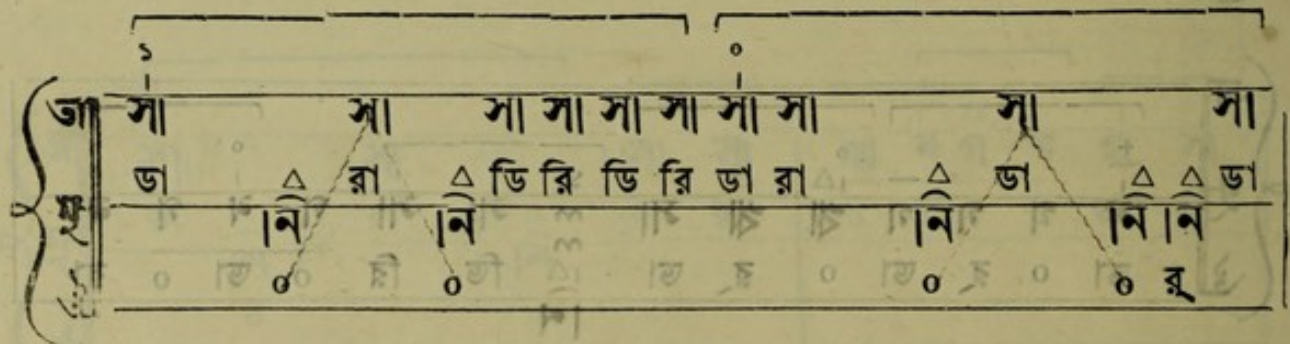 ১ ০
সা সা সা সা সা সা সা সা সা সা
ডা △ রা △ ডি রি ডি রি ডা রা △ ডা △ △ ডা
নি নি নি নি নি
০ ০ ০ ০ রূ